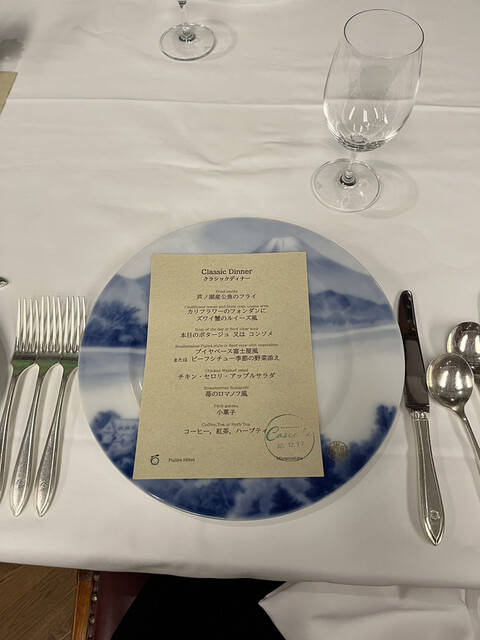 Classic Dinner
クラシックディナー
Fried smelts
芦ノ湖産公魚のフライ
カリフラワーのフォンダンに
ズワイ蟹のルイーズ風
Soup of the day or Beef clear soup
本日のポタージュ 又は コンソメ
Bouillabaisse Fujiya style or Beef stew with vegetables
ブイヤベース富士屋風
または ビーフシチュー季節の野菜添え
Chicken Waldorf salad
チキン・セロリ・アップルサラダ
Strawberries Romanoff
苺のロマノフ風
小菓子
Coffee,Tea or Herb Tea
コーヒー, 紅茶, ハーブティ
Fujiya Hotel